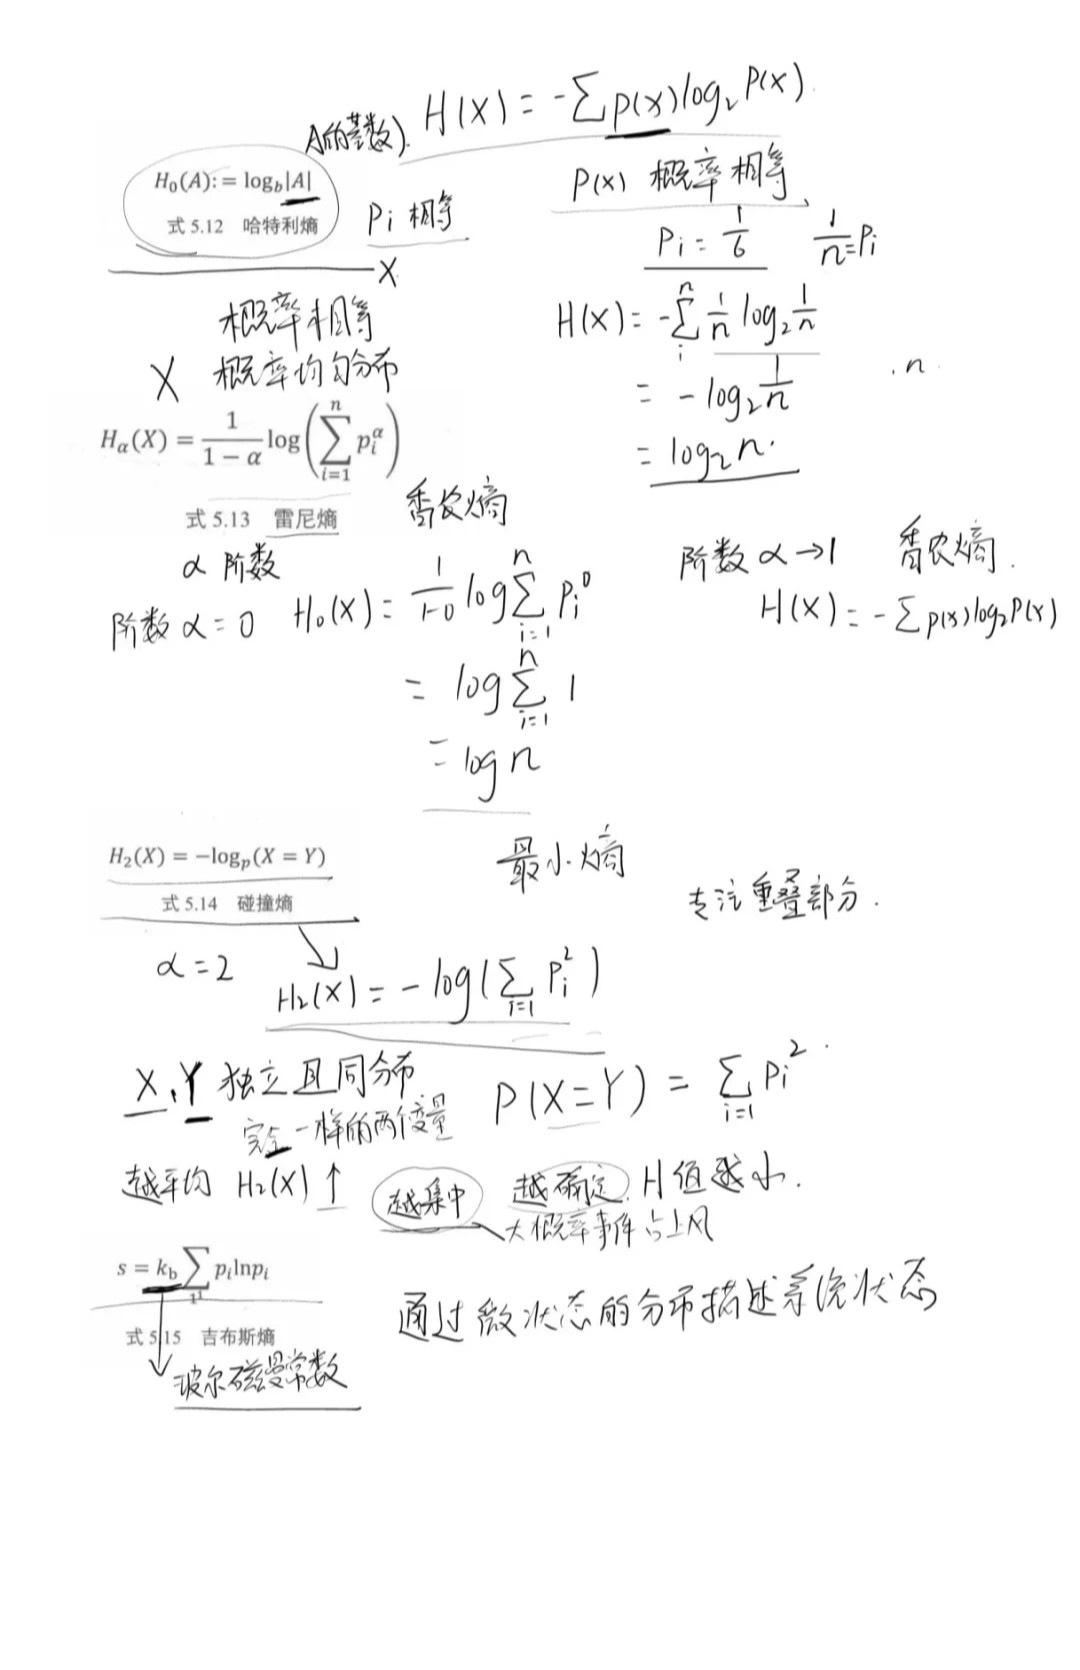 H(X) = -∑p(x)log₂P(x)
A的基数)
H₀(A): = log_b|A|
式 5.12 哈特利熵
Pi 相等
P(x) 概率相等、
Pi = 1/6 1/n = Pi
X
概率相等
X 概率均匀分布
H(X) = -∑ⁿᵢ 1/n log₂ 1/n
= -log₂ 1/n
.n
= log₂n.
Hα(X) = 1/(1 − α) log(∑ⁿᵢ₌₁ pᵢ^α)
式 5.13 雷尼熵
香农熵
α 阶数
阶数 α→1 香农熵.
H(X) = -∑p(x)log₂P(x)
阶数 α = 0 H₀(X) = 1/(1-0) log∑ⁿᵢ₌₁ Pᵢ⁰
= log∑ⁿᵢ₌₁ 1
= log n
H₂(X) = −log_p(X = Y)
式 5.14 碰撞熵
最小熵
专注重叠部分.
α = 2
H₂(X) = -log(∑ᵢ₌₁ Pᵢ²)
X、Y 独立且同分布
完全一样的两个变量
P(X=Y) = ∑ᵢ₌₁ Pᵢ²
越平均 H₂(X)↑
越集中 越确定 H值越小.
大概率事件占上风
s = k_b ∑ pᵢlnpᵢ
式 5.15 吉布斯熵
通过微状态的分布描述系统状态
玻尔磁曼常数